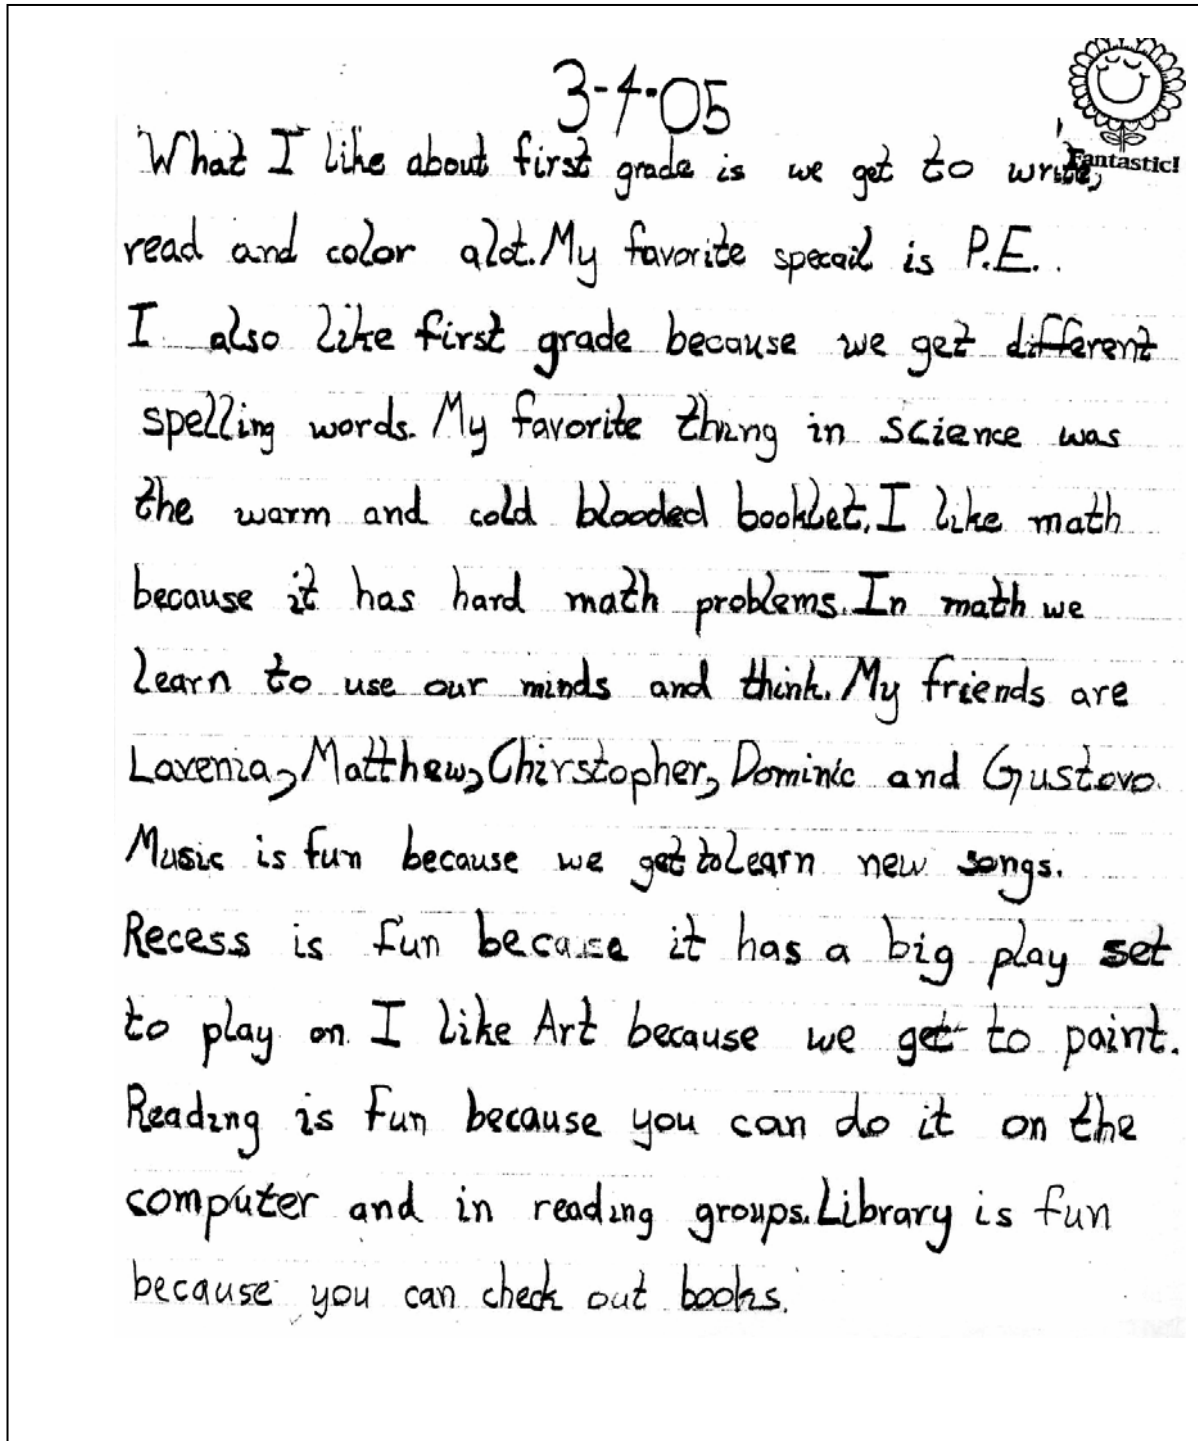 3-4-05
Fantastic!
What I like about first grade is we get to write,
read and color alot. My favorite specail is P.E..
I also like first grade because we get different
spelling words. My favorite thing in science was
the warm and cold blooded booklet. I like math
because it has hard math problems. In math we
learn to use our minds and think. My friends are
Lavenia, Matthew, Chirstopher, Dominic and Gustovo.
Music is fun because we get to learn new songs.
Recess is fun because it has a big play set
to play on. I like Art because we get to paint.
Reading is fun because you can do it on the
computer and in reading groups. Library is fun
because you can check out books.